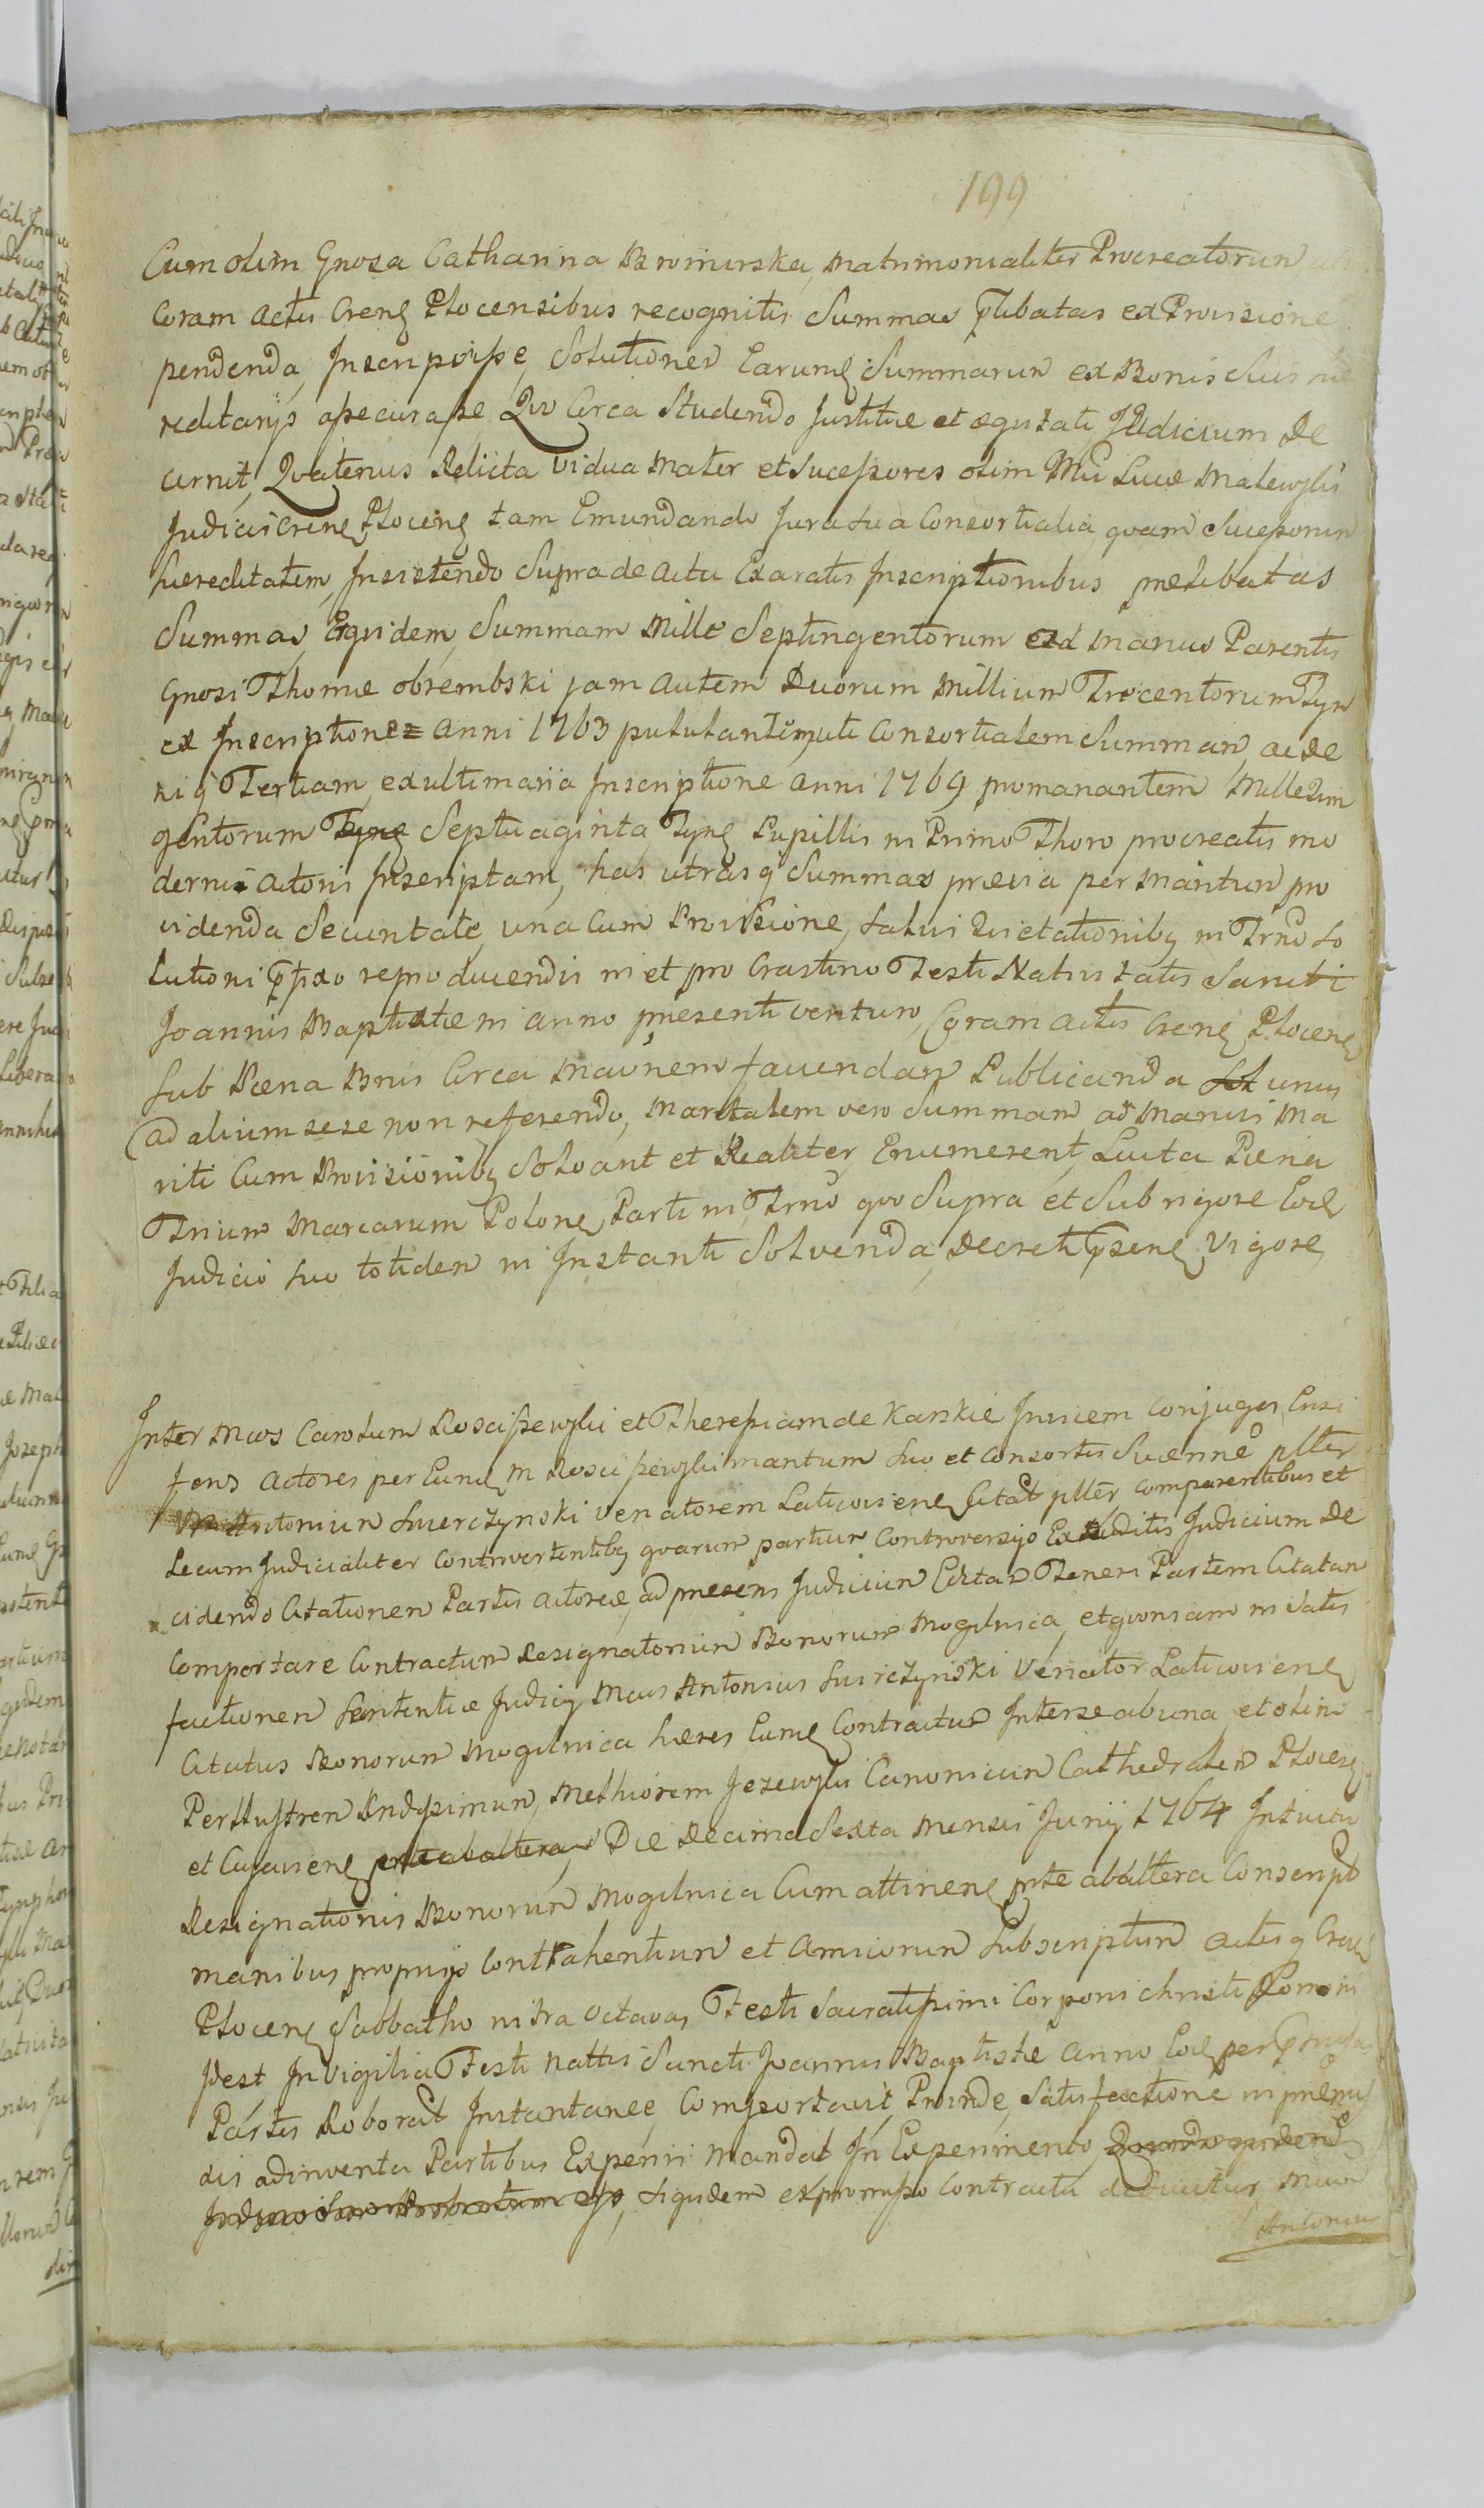 199
Cum olim Gnosa Catharina Bromirska, Matrimonialiter Procreatorum
Coram Actis Crens Plocensibus recognitis Summas plibatas ex Provisione
pendenda, Inscripsisse, Solutiones Earumq Summarum ex Bonis Suis
reditarijs assecurasse Quo Circa Studendo Justitiæ et æquitati, Judicium De
cernit, Qvatenus Relicta Vidua Mater et Sucessores olim Mci Lucæ Malewski
Judicis Crens Plocens tam Emundando Jura Sua Consortialia, qvam Sucessorum
hæreditatem, Insistendo Supra de actu Exaratis Inscriptionibus prelibatas
Summas, Eqvidem, Summam Mille Septingentorum ad manus Parentis
Gnosi Thomæ obrembski jam autem Duorum Millium Trecentorum Tyn
ex Inscriptione anni 1763 pululantem, uti Consortialem Summam, ac de
niq Tertiam, ex ultimaria Inscriptione anni 1769 promanantem Mille Qvin
gentorum Tyns Septuaginta Tyns Pupillis in Primo Thoro procreatis mo
derni Actoris Inscriptam, has utrasq Summas prævia per Maritum pro
videnda Securitate, una Cum Provisione, Salvis Qvietationibq in Trno So
lutioni ppxo reproducendis in et pro Crastino Festi Nativitatis Sancti
Joannis Baptistæ in anno presenti venturo, Coram Actis Crens Plocens
sub Pæna Bnis Circa Maynem favendam Publicanda unus
ad alium sese non referendo, Maritalem vero Summam ad Manus Ma
riti Cum Provisionibq Solvant et Realiter, Enumerent, Luita Pæna
Trium Marcarum Polons, Parti in Trno qvo Supra et Sub rigore Eod
Judicio Suo totidem in Instanti Solvenda, Decreti psens Vigore,
Inter Mcos Carolum Rosciszewski et Theressiam de Karskie Invicem Conjuges, Ensi
feros Actores per Eund M Rosciszewski maritum Suo et Consortis Suæ nne pltter
Antonium Swierczynski Venatorem Laticoviens Citat pltter Comparentibus et
Secum Judicialiter Controvertentibq qvarum partium Controversijs Exauditis Judicium De
cidendo Citationem Partis Actoreæ, ad presens Judicium Editam Teneri Partem Citatam
Comportare Contractum Resignatorium Bonorum Mogilnica, et qvoniam in satis
factionem Sententiæ Judicij Mcus Antonius Swirczynski Venator Laticoviens
Citatus Bonorum Mogilnica hæres Eund Contractum Inter se ab una, et olim
Perillustrem Rndissimum, Melhiorem Jezewski Canonicum Cathedralem Plocens
et Cujaviens parte ab altera, Die Decima Sexta Mensis Junij 1764 Intuitu
Resignationis Bonorum Mogilnica Cum attinens pte ab altera Conscript
manibus proprijs Contrahentium et Amicorum Subscriptum actisq Crens
Plocens Sabbatho intra octavas Festi Sacratissimi Corporis Christi Domini
Idest In Vigilia Festi Nattis Sancti Joannis Baptistæ Anno Eod per
Partis Roborat Instantanee, Comportavit, Proinde, Satisfactione in
sis adinventa Partibus Experiri Mandat In Experimento,
siqvidem ex promisso Contractu deducitur Mcum
Antonius